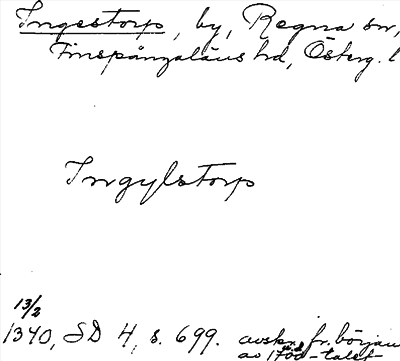 Ingestorp, by, Regna sn,
Finspångaläns hd, Österg. l
Ingylstorp
13/2
1340, SD 4, s. 699. avskr. fr. början
av 1400-talet